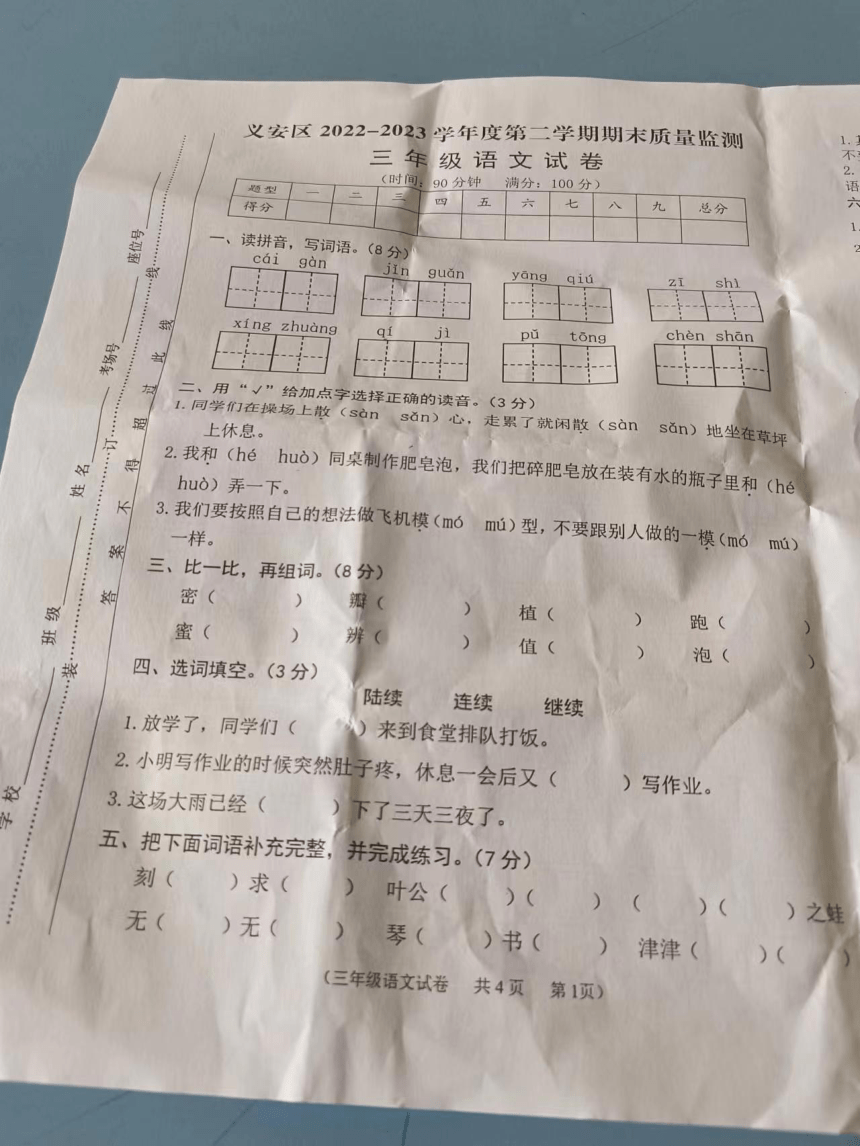 义安区 2022-2023 学年度第二学期期末质量监测
三年级语文试卷
（时间：90 分钟 满分：100 分）
题型 一 二 三 四 五 六 七 八 九 总分
得分
一、读拼音，写词语。（8 分）
cái gàn jǐn guǎn yāng qiú zī shì
xíng zhuàng qí jì pǔ tōng chèn shān
二、用“√”给加点字选择正确的读音。（3 分）
1. 同学们在操场上散（sàn sǎn）心，走累了就闲散（sàn sǎn）地坐在草坪
上休息。
2. 我和（hé huò）同桌制作肥皂泡，我们把碎肥皂放在装有水的瓶子里和（hé
huò）弄一下。
3. 我们要按照自己的想法做飞机模（mó mú）型，不要跟别人做的一模（mó mú）
一样。
三、比一比，再组词。（8 分）
密（ ） 瓣（ ） 植（ ） 跑（ ）
蜜（ ） 辨（ ） 值（ ） 泡（ ）
四、选词填空。（3 分）
陆续 连续 继续
1. 放学了，同学们（ ）来到食堂排队打饭。
2. 小明写作业的时候突然肚子疼，休息一会后又（ ）写作业。
3. 这场大雨已经（ ）下了三天三夜了。
五、把下面词语补充完整，并完成练习。（7 分）
刻（ ）求（ ） 叶公（ ）（ ） （ ）（ ）之蛙
无（ ）无（ ） 琴（ ）书（ ） 津津（ ）（ ）
（三年级语文试卷 共 4 页 第 1页）
学校 班级 姓名 考场号 座位号
装 订 线
答案不得超过此线
1.
2.
语
六
1.
2